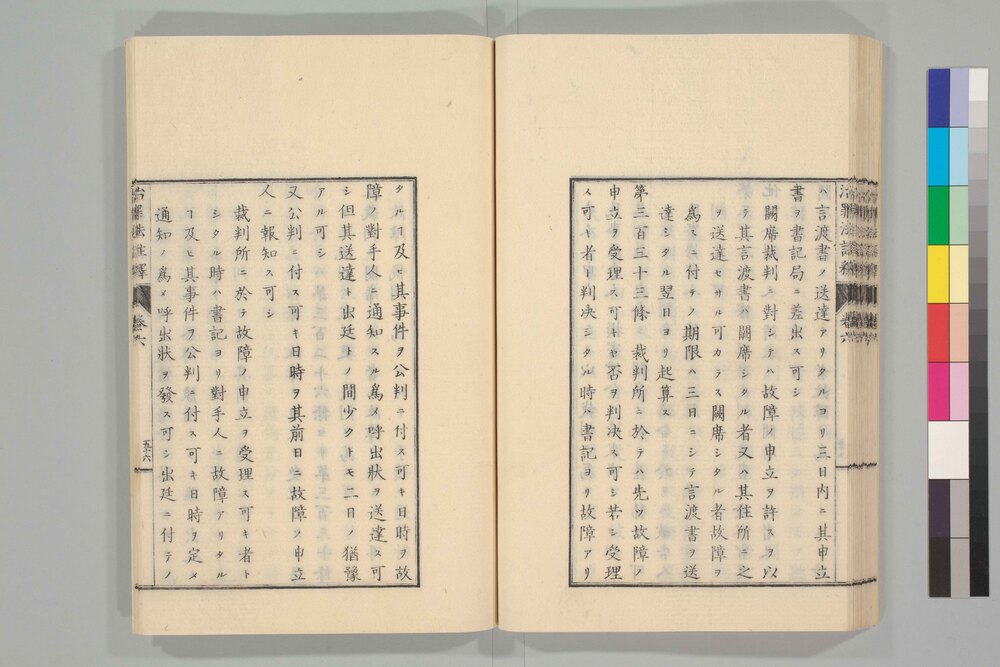 ハ言渡書ノ送達アリタルヨリ三日内ニ其申立
書ヲ書記局ニ差出ス可シ
闕席裁判ニ對シテハ故障ノ申立ヲ許スヲ以
テ其言渡書ハ闕席シタル者又ハ其住所ニ之
ヲ送達セサル可カラス闕席シタル者故障ヲ
爲スニ付テノ期限ハ三日ニシテ言渡書ヲ送
達シタル翌日ヨリ起算ス
第三百三十三條 裁判所ニ於テハ先ツ故障ノ
申立ヲ受理ス可キヤ否ヲ判決ス可シ若シ受理
ス可キ者ト判決シタル時ハ書記ヨリ故障アリ
タルヿ及ヒ其事件ヲ公判ニ付ス可キ日時ヲ故
障ノ對手人ニ通知スル爲メ呼出狀ヲ送達ス可
シ但其送達ト出廷トノ間少クトモ二日ノ猶豫
アル可シ
又公判ニ付ス可キ日時ヲ其前日ニ故障ノ申立
人ニ報知ス可シ
裁判所ニ於テ故障ノ申立ヲ受理ス可キ者ト
シタル時ハ書記ヨリ對手人ニ故障アリタル
ヿ及ヒ其事件ヲ公判ニ付ス可キ日時ヲ定メ
通知ノ爲メ呼出狀ヲ發ス可シ出廷ニ付テノ
治罪法註釋 卷六 五十六